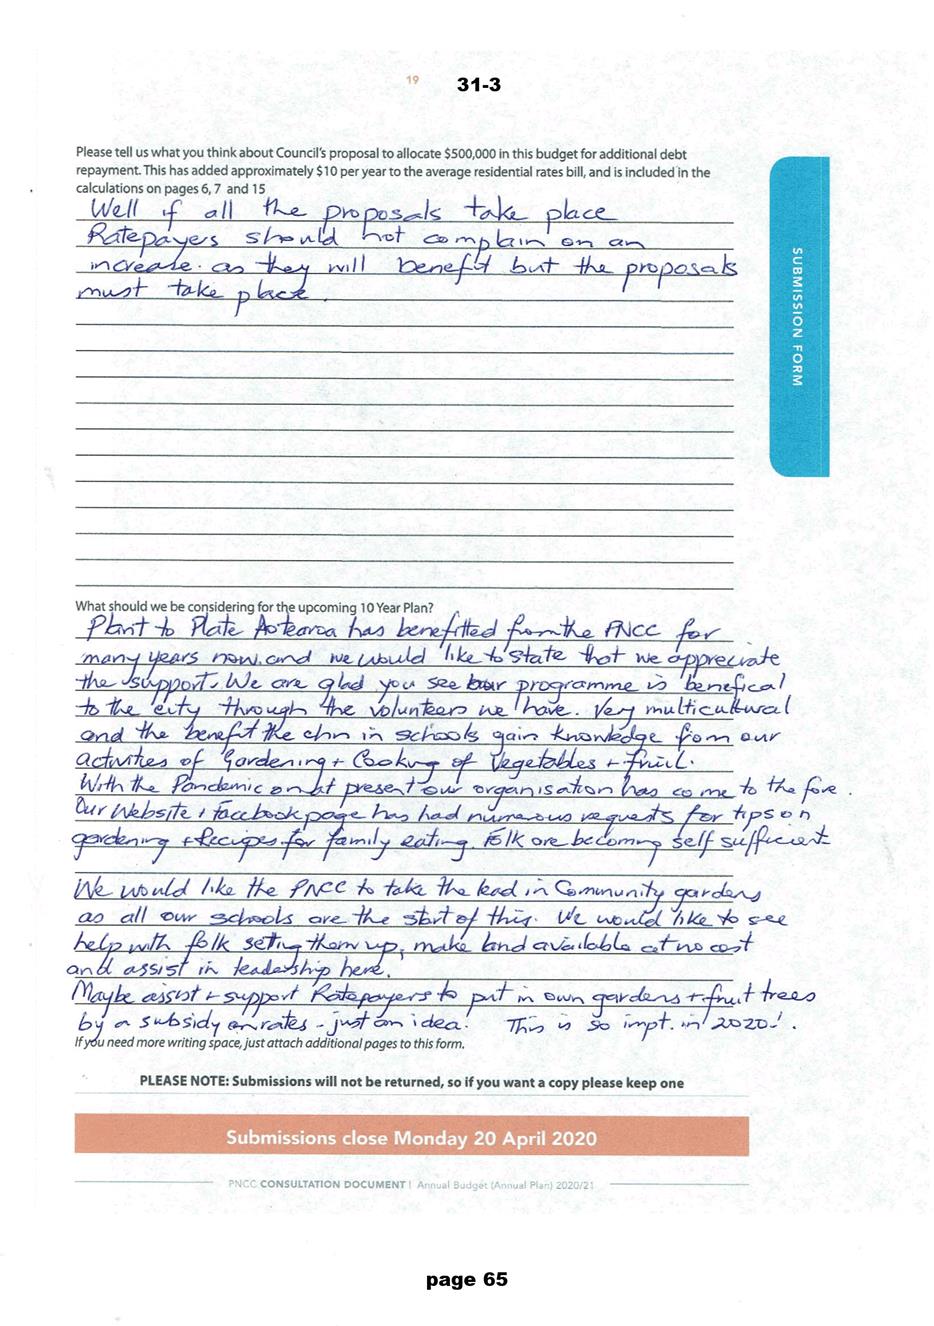 19
31-3
Please tell us what you think about Council's proposal to allocate $500,000 in this budget for additional debt
repayment. This has added approximately $10 per year to the average residential rates bill, and is included in the
calculations on pages 6, 7 and 15
Well if all the proposals take place
Ratepayers should not complain on an
increase. as they will benefit but the proposals
must take place.
SUBMISSION FORM
What should we be considering for the upcoming 10 Year Plan?
Plant to Plate Aotearoa has benefitted from the PNCC for
many years now. and we would like to state that we appreciate
the support. We are glad you see our programme is benefical
to the city through the volunteers we have. Very multicultural
and the benefit the chn in schools gain knowledge from our
activities of Gardening + Cooking of Vegetables + fruit.
With the Pandemic on at present our organisation has come to the fore.
Our Website + Facebook page has had numerous requests for tips on
gardening + Recipes for family eating. Folk are becoming self sufficient
We would like the PNCC to take the lead in Community gardens
as all our schools are the start of this. We would like to see
help with folk seting them up, make land available at no cost
and assist in leadership here.
Maybe assist + support Ratepayers to put in own gardens + fruit trees
by a subsidy on rates - just an idea! This is so impt. in 2020!.
If you need more writing space, just attach additional pages to this form.
PLEASE NOTE: Submissions will not be returned, so if you want a copy please keep one
Submissions close Monday 20 April 2020
PNCC CONSULTATION DOCUMENT | Annual Budget (Annual Plan) 2020/21
page 65